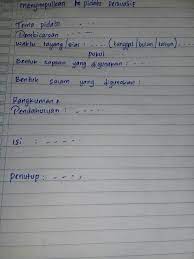 menyimpulkan isi pidato persuasif
Tema pidato : - - - -
Pembicaraan : - - - -
Waktu tayang / siar : - - - - (tanggal / bulan / tahun) - - - -
pukul
Bentuk sapaan yang digunakan : - - -
Bentuk salam yang digunakan :
Rangkuman
Pendahuluan : - - - -
Isi : - - - -
penutup : - - - -